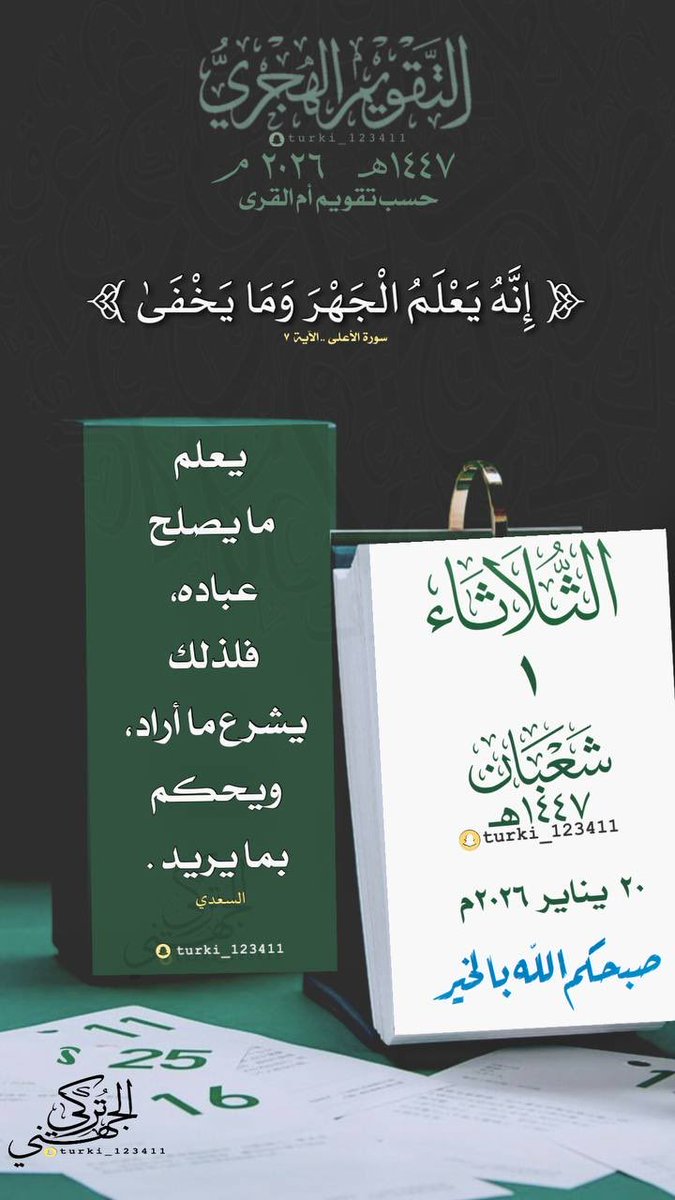 التَّقْوِيم الهِجْرِيُّ
turki_123411
١٤٤٧هـ ٢٠٢٦م
حسب تقويم أم القرى
﴿ إِنَّهُ يَعْلَمُ الْجَهْرَ وَمَا يَخْفَىٰ ﴾
سورة الأعلى .. الآية ٧
يعلم
ما يصلح
عباده،
فلذلك
يشرع ما أراد،
ويحكم
بما يريد .
السعدي
turki_123411
الثُّلَاثَاء
١
شَعْبَان
١٤٤٧هـ
turki_123411
٢٠ يناير ٢٠٢٦م
صبحكم الله بالخير
11
25
16
تركي
الجهني
turki_123411